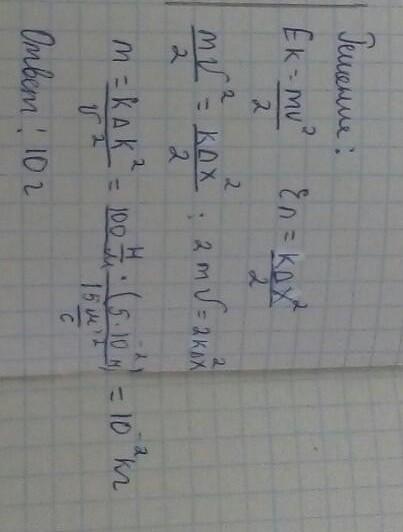 Решение:
Eк = mv²/2 Eп = kΔx²/2
mv²/2 = kΔx²/2 ; 2mv = 2kΔx²
m = kΔk²/v² = 100 Н/м · (5·10⁻² м)²/(5 м/с)² = 10⁻² кг
Ответ: 10 г